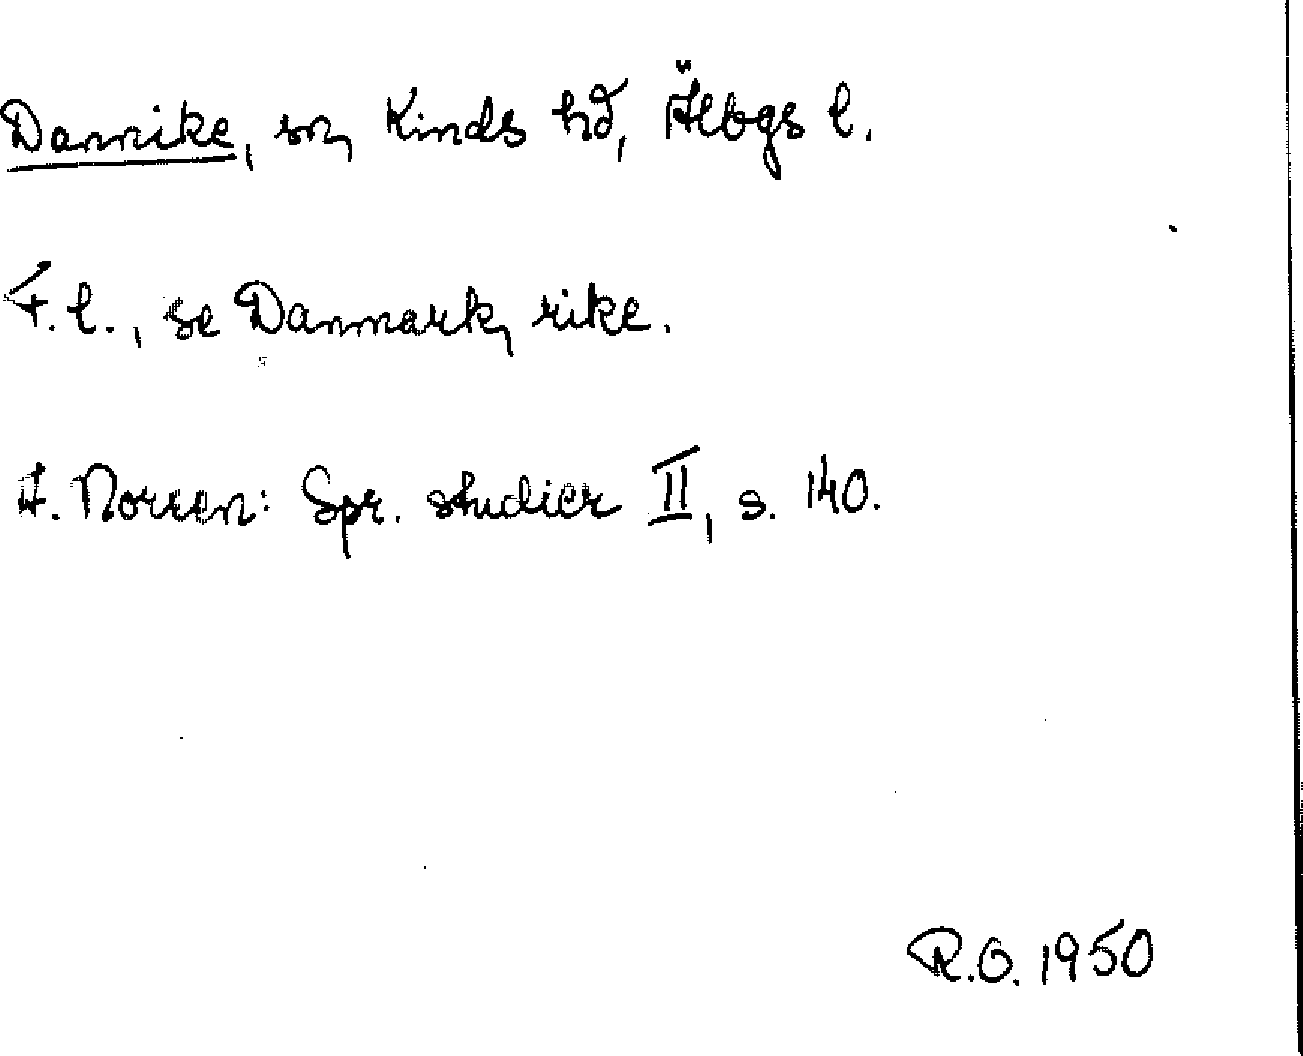 Dannike, sn, Kinds hd, Älbgs l.
F. l., se Danmark, rike.
A. Noreen: Spr. studier II, s. 140.
R.O. 1950